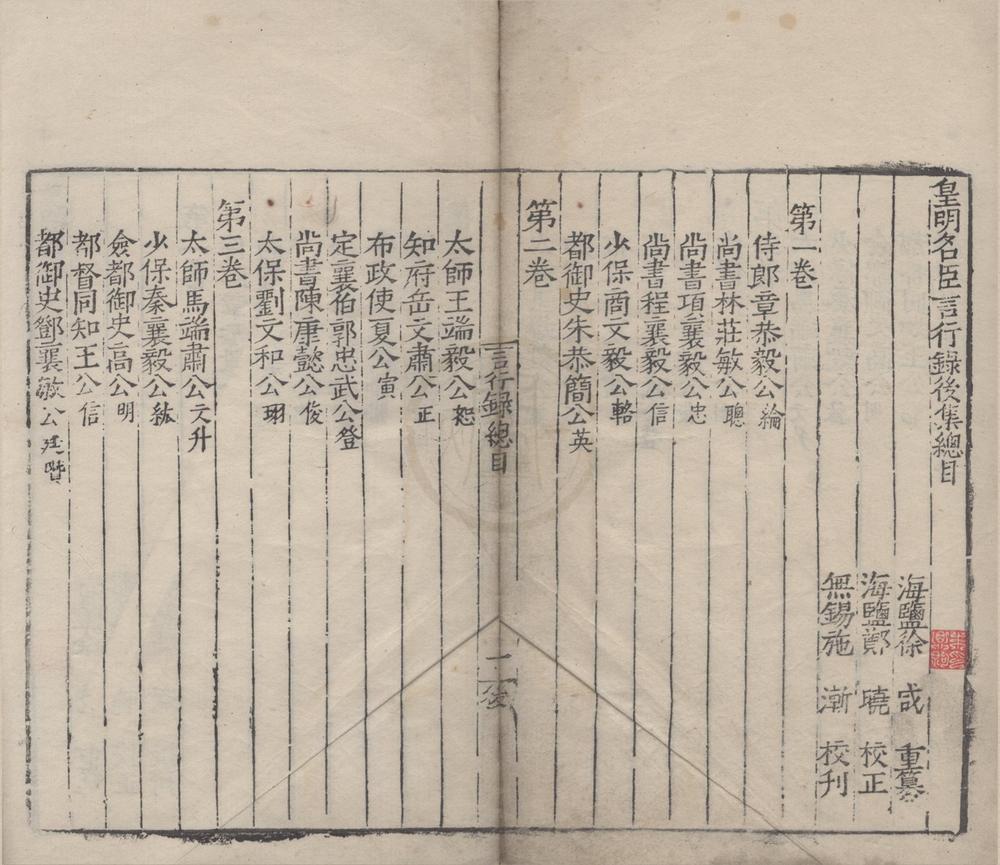 皇明名臣言行錄後集總目
海鹽徐 咸 重纂
海鹽鄭 曉 校正
無錫施 漸 校刊
第一卷
侍郎章恭毅公綸
尚書林莊敏公聰
尚書項襄毅公忠
尚書程襄毅公信
少保商文毅公輅
都御史朱恭簡公英
第二卷
言行錄總目
一
後
太師王端毅公恕
知府岳文肅公正
布政使夏公寅
定襄伯郭忠武公登
尚書陳康懿公俊
太保劉文和公珝
第三卷
太師馬端肅公文升
少保秦襄毅公紘
僉都御史高公明
都督同知王公信
都御史鄧襄敏公廷瓚